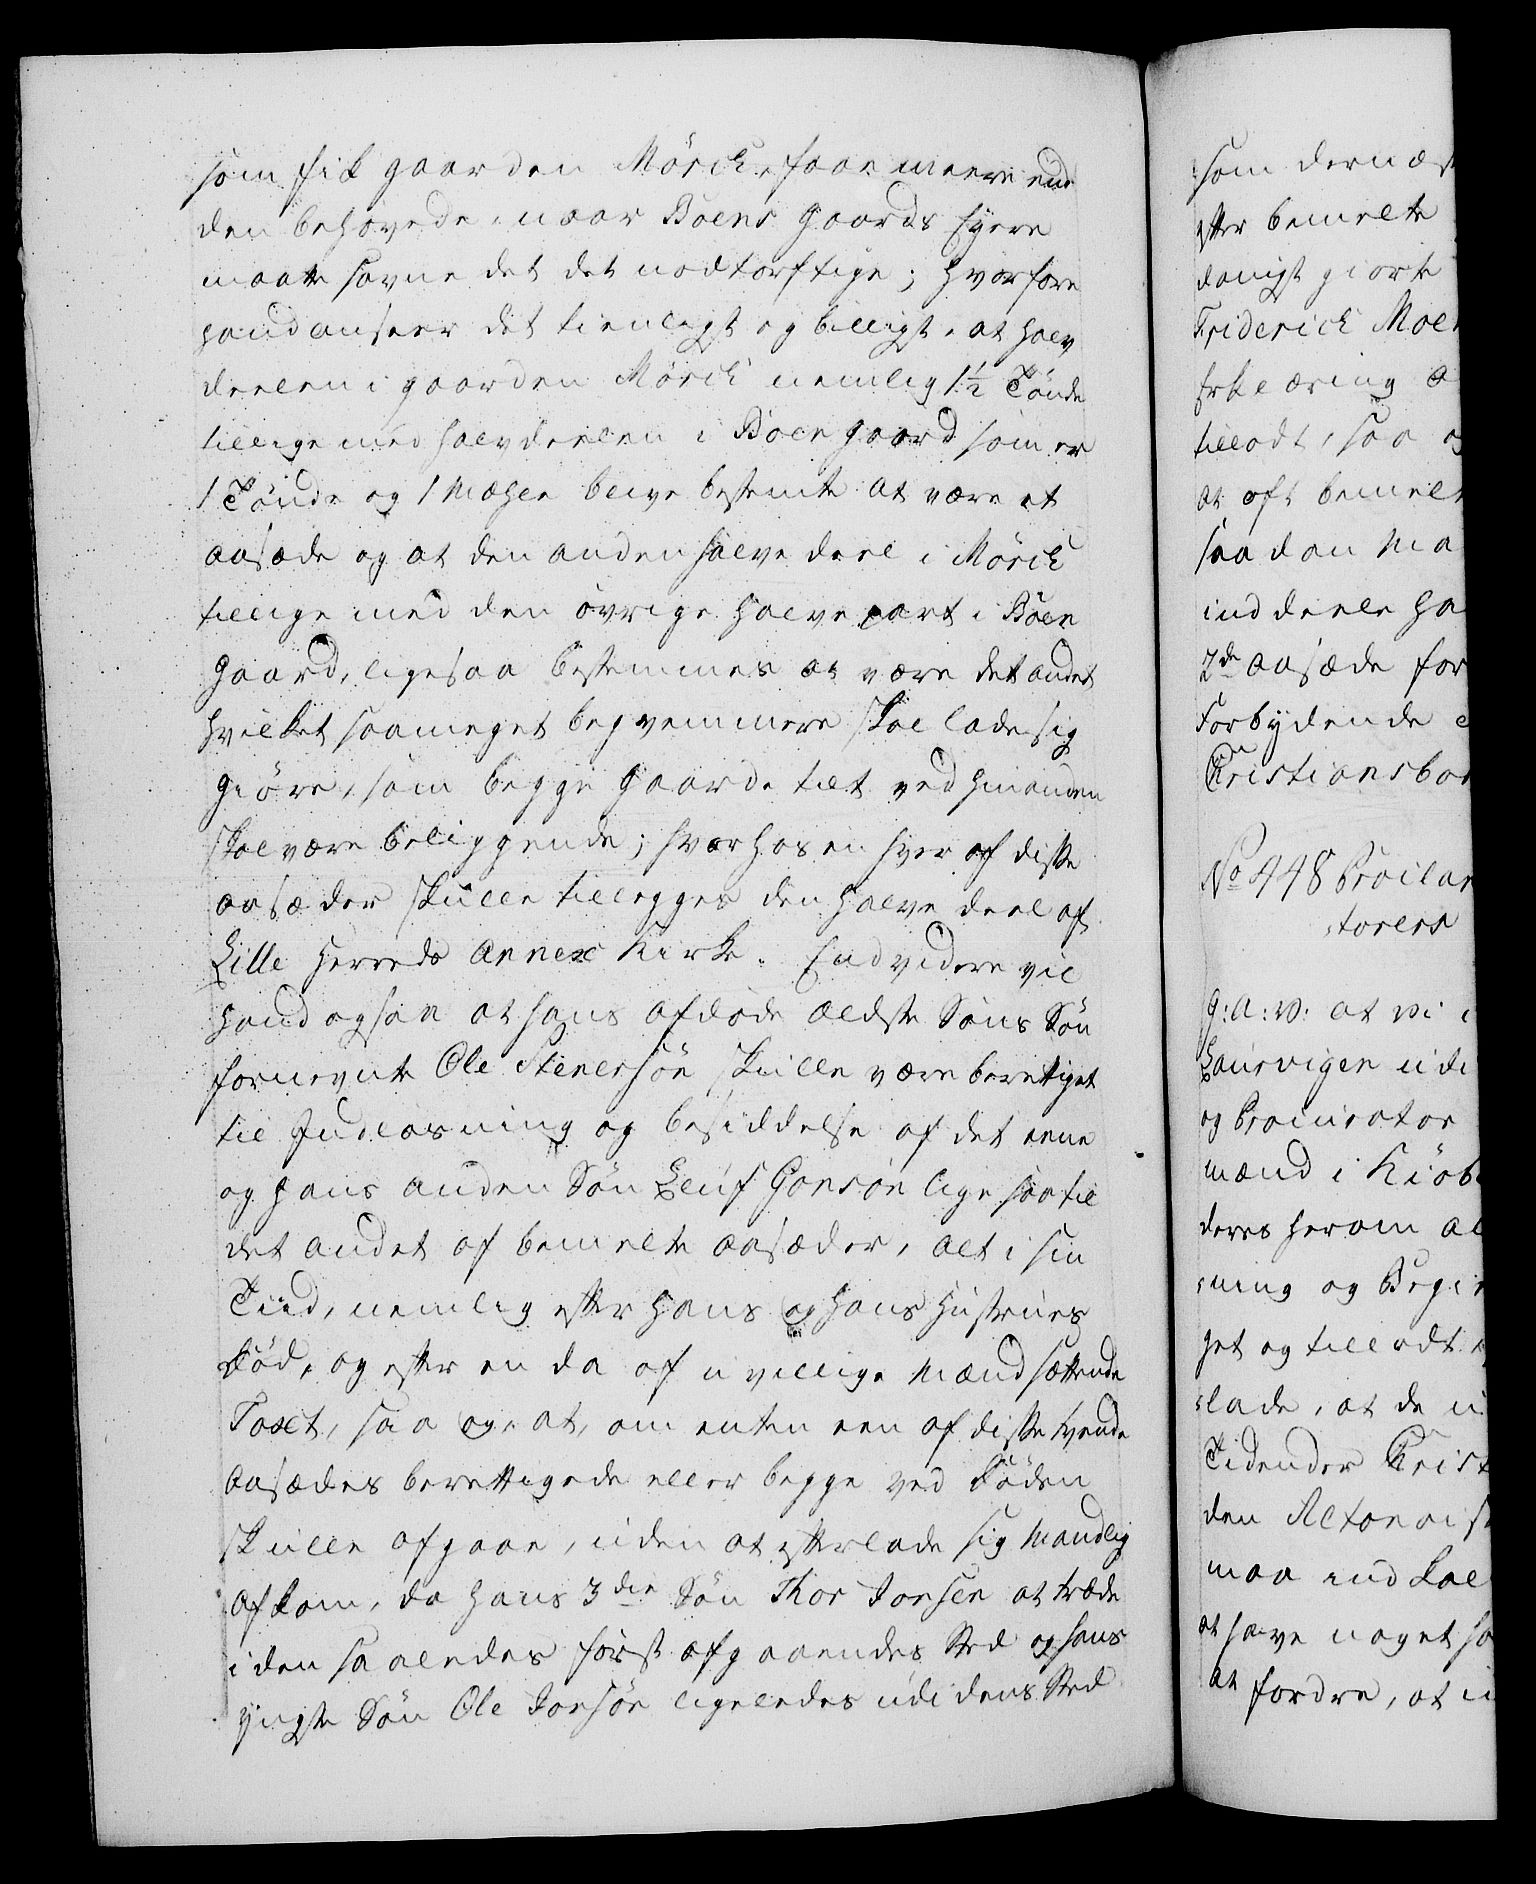 som fik gaarden Mörck, faae meere end
den behövede, naar Böens Gaards Eyere
maatte savne det det nødtørftige; hvorfore
hand anseer det tienligst og billigst, at halv
deelen i gaarden Mörck nemlig 1½ Tønde
tillige med halvdeelen i Böen Gaard som er
1 Tønde og 1 Mæhle blive bestemte at være et
aasæde og at den anden halve deel i Mörck
tillige med den øvrige halve part i Böen
Gaard, ligesaa bestemmes at være det andet
hvilket saameget beqvemmere skal lade sig
giöre, som begge Gaarde tæt ved hinanden
skal være beliggende; hvorhos en hver af disse
aasæder skulle tillegges den halve deel af
Lille Herreds Annex Kirke. End videre vil
hand ogsaa at hans afdøde ældste Søns Søn
fornevnte Ole Stenersön skulle være berettiget
til Indløsning og besiddelse af det eene
og hans anden Søn Leuf Gonsön lige saa til
det andet af bemelte aasæder, alt i sin
Tiid, nemlig efter hans og hans Hustrues
Død, og efter en da af uvillige Mænd sættende
Taxt, saa og, at, om enten een af disse tvende
Aasædes berettigede eller begge ved Döden
skulle afgaae, uden at efterlade sig Mandlig
Afkom, da hans 3die Søn Thor Jonsen at træde
i den saaledes først afgaaendes Sted og hans
yngste Søn Ole Jonsön ligeledes udi dens Sted
som dernæst
efter bemelte
danigt giorte
Friderich Mol
Erklæring
tilladt, saa
at oft bemelt
saadan Ma
inddeele ha
2de aasæde for
Forbydende
Christiansbor
No 448
g: A: V: at Vi
Laurvigen udi
og Procurator
mænd i Kiöb
deres herom al
ning og Begie
get og tilladt
lade, at de
Tidender Christ
den Altonais
maa indkal
at have noget
at fordre, at